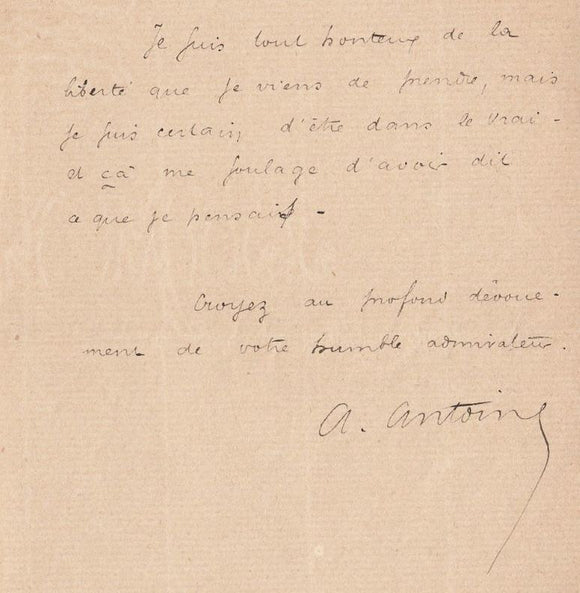 Je suis tout honteux de la
liberté que je viens de prendre, mais
je suis certain, d'être dans le vrai -
et çà me soulage d'avoir dit
ce que je pensais -
Croyez au profond dévoue-
ment de votre humble admirateur.
A. Antoine